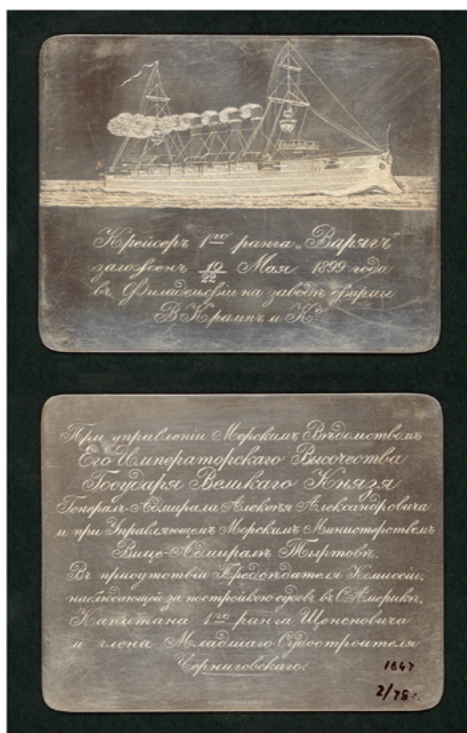 Крейсеръ 1го ранга „Варягъ“
заложенъ 10/22 Мая 1899 года
въ Филадельфіи на заводѣ фирмы
В. Крампъ и Ко
При управленіи Морскимъ Вѣдомствомъ
Его Императорскаго Высочества
Государя Великаго Князя
Генералъ-Адмирала Алексѣя Александровича
и при Управляющемъ Морскимъ Министерствомъ
Вице-Адмиралѣ Тыртовѣ.
Въ присутствіи Предсѣдателя Комиссіи,
наблюдающей за постройкою судовъ въ С. Америкѣ,
Капитана 1го ранга Щенсновича
и члена Младшаго Судостроителя
Черниговскаго.
1647
2/75